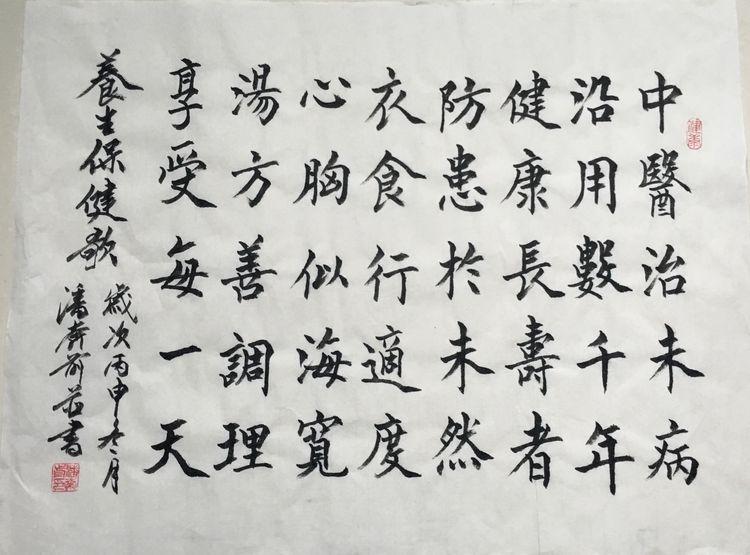 中醫治未病
沿用數千年
健康長壽者
防患於未然
衣食行適度
心胸似海寬
湯方善調理
享受每一天
養生保健歌
歲次丙申冬月
潘奔前並書